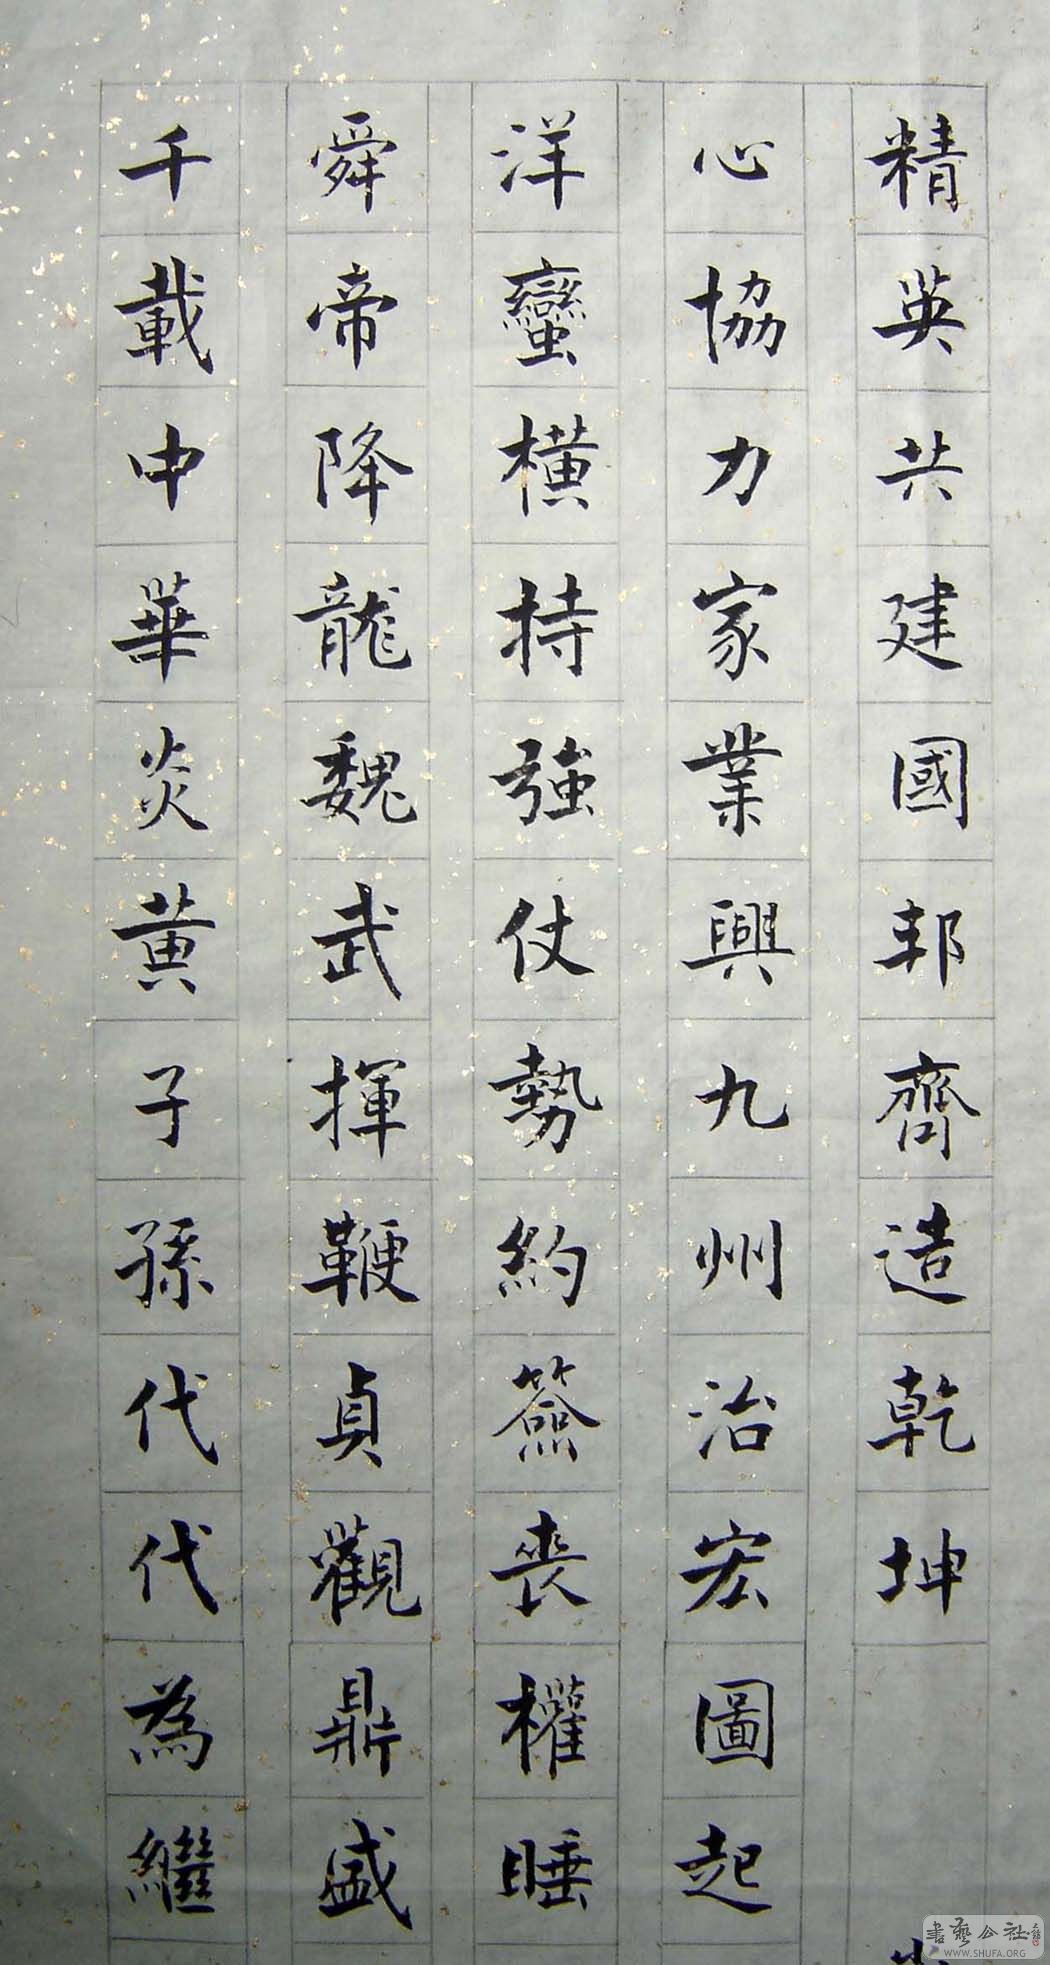 千載中華炎黃子孫代代為繼
舜帝降龍魏武揮鞭貞觀鼎盛
洋蠻橫持強仗勢約簽喪權睡
心協力家業興九州治宏圖起
精英共建國邦齊造乾坤
書藝公社
WWW.SHUFA.ORG